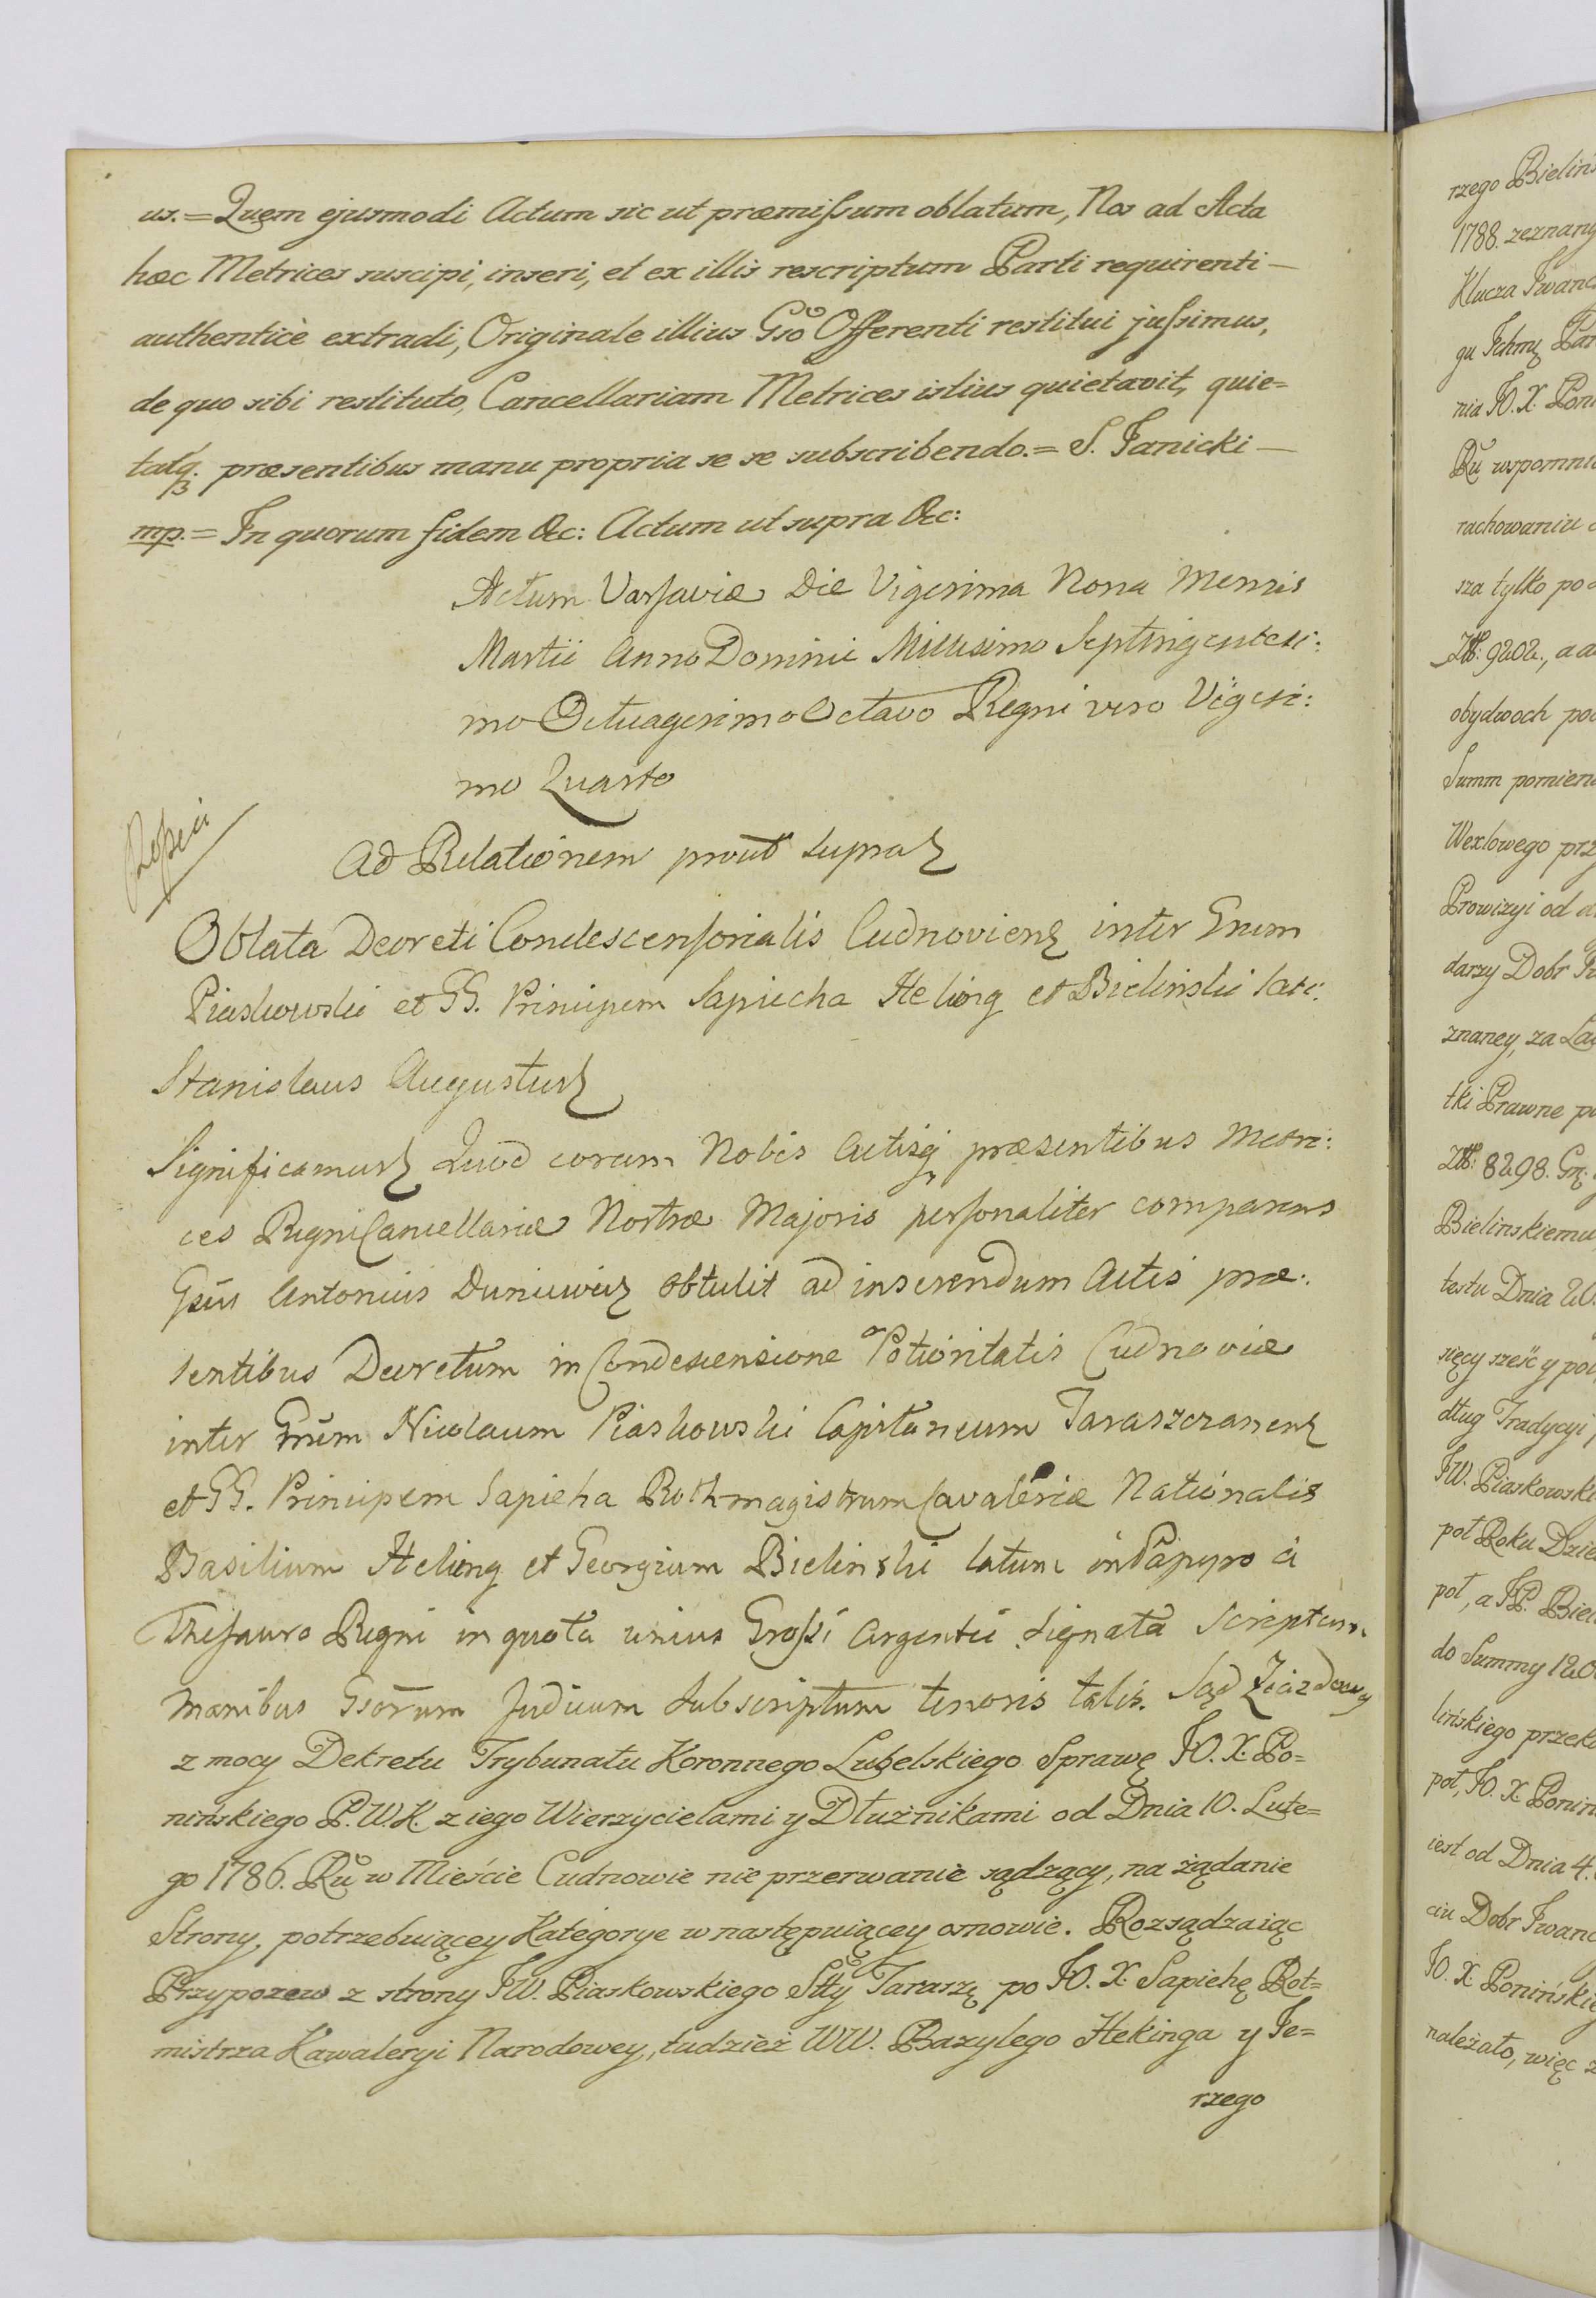 us. = Quem ejusmodi Actum sic ut præmissum oblatum, Nos ad Acta
hæc Metrices suscipi, inseri, et ex illis rescriptum Parti requirenti —
authenticè extradi, Originale illius Gsō Offerenti restitui jussimus,
de quo sibi restituto, Cancellariam Metrices istius quietavit, quie=
tatq. præsentibus manu propria se se subscribendo. = S. Janicki —
mp. = In quorum fidem &c: Actum ut supra &c:
Actum Varsaviæ Die Vigesima Nona Mensis
Martii Anno Domini Millesimo Septingentesi:
mo Octuagesimo Octavo Regni vero Vigesi:
mo Quarto
Ad Relationem prout supra
Oblata Decreti Condescensorialis Cudnoviens inter Gnum
Piaskowski et GG. Principem Sapiecha Heking et Bielinski lati:
Stanislaus Augustus
Significamus Quod coram Nobis Actisq præsentibus Metri:
ces Regni Cancellariæ Nostræ Majoris personaliter comparens
Gsūs Antonius Duniewicz obtulit ad inserendum Actis præ:
sentibus Decretum in Condescensione Potioritatis Cudnoviæ
inter Gnūm Nicolaum Piaskowski Capitaneum Taraszczanens
et GG. Principem Sapieha Rothmagistrum Cavaleriæ Nationalis
Basilium Heking et Georgium Bielinski latum in Papyro à
Thesauro Regni in quota unius Grossi Argentei signata Scriptum
manibus Gsōrum Judicum subscriptum tenoris talis. Sąd Ziazdowy
z mocy Dekretu Trybunału Koronnego Lubelskiego Sprawę JO. X. Po=
nińskiego P. W. K. z iego Wierzycielami y Dłużnikami od Dnia 10. Lute=
go 1786. Rŭ w Mieście Cudnowie nie przerwanie sądzący, na żądanie
Strony, potrzebuiącey Kategorye w następuiącey osnowie. Rozsądzaiąc
Przypozew z strony JW. Piaskowskiego Stty Taraszę po JO. X. Sapiehę Rot=
mistrza Kawaleryi Narodowey, tudzież WW. Bazylego Hekinga y Je=
rzego
rzego Bielińs
1788. zeznany
Klucza Iwanc
gu Ichmę Pan
nia JO. X. Poni
Rŭ wspomnio
rachowaniu
sza tylko pod
9202., a a
obydwoch poc
Summ pomieni
Wexlowego prz
Prowizyi od
darzy Dobr
znaney, za
tki Prawne po
8298. Grę.
Bielinskiemu
testu Dnia 20.
sięcy sześć y poł
dług Tradycyi
JW. Piaskowski
poł Roku Dzie
poł, a JP. Biel
do Summy 120
lińskiego przeka
poł, JO. X. Poniń
iest od Dnia 4.
ciu Dobr Iwanc
JO. X. Ponińskie
należało, więc z